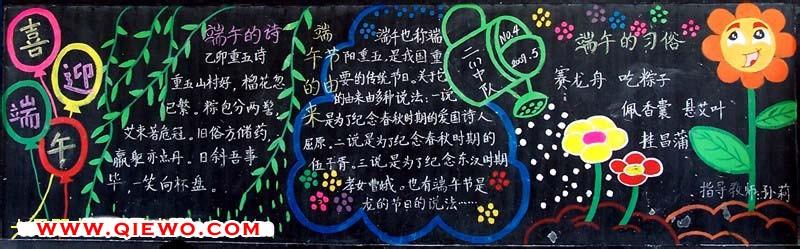 喜
迎
端
午
端午的诗
乙卯重五诗
重五山村好，榴花忽
已繁。粽包分两髻，
艾束著危冠。旧俗方储药，
羸躯亦点丹。日斜吾事
毕，一笑向杯盘。
端午节的由来
端午也称端
阳重五。是我国重
要的传统节日。关于它
的由来由多种说法：一说
是为了纪念春秋时期的爱国诗人
屈原。二说是为了纪念春秋时期的
伍子胥。三说是为了纪念东汉时期
孝女曹娥。也有端午节是
龙的节日的说法……
No.4
2009.5
二(1)中队
端午的习俗
赛龙舟 吃粽子
佩香囊 悬艾叶
挂昌蒲
指导教师:孙莉
WWW.QIEWO.COM